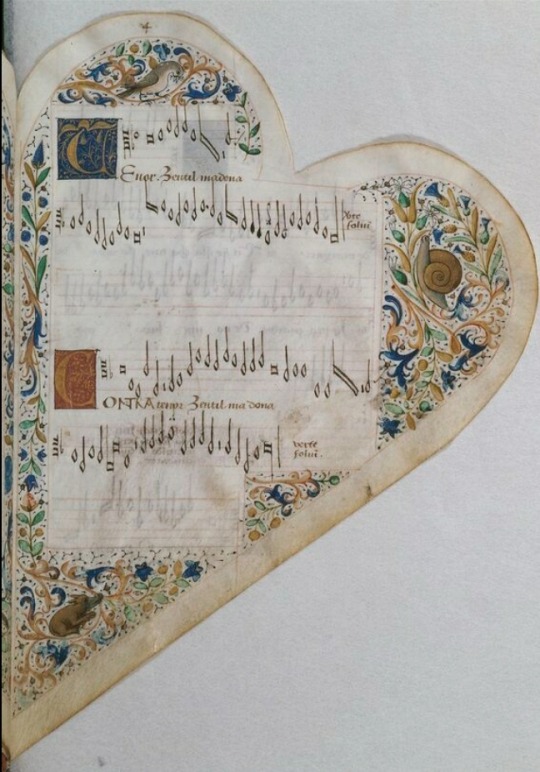 Tenor. Zentil madona
verte
folium
CONTRA tenor Zentil madona
verte
folium.